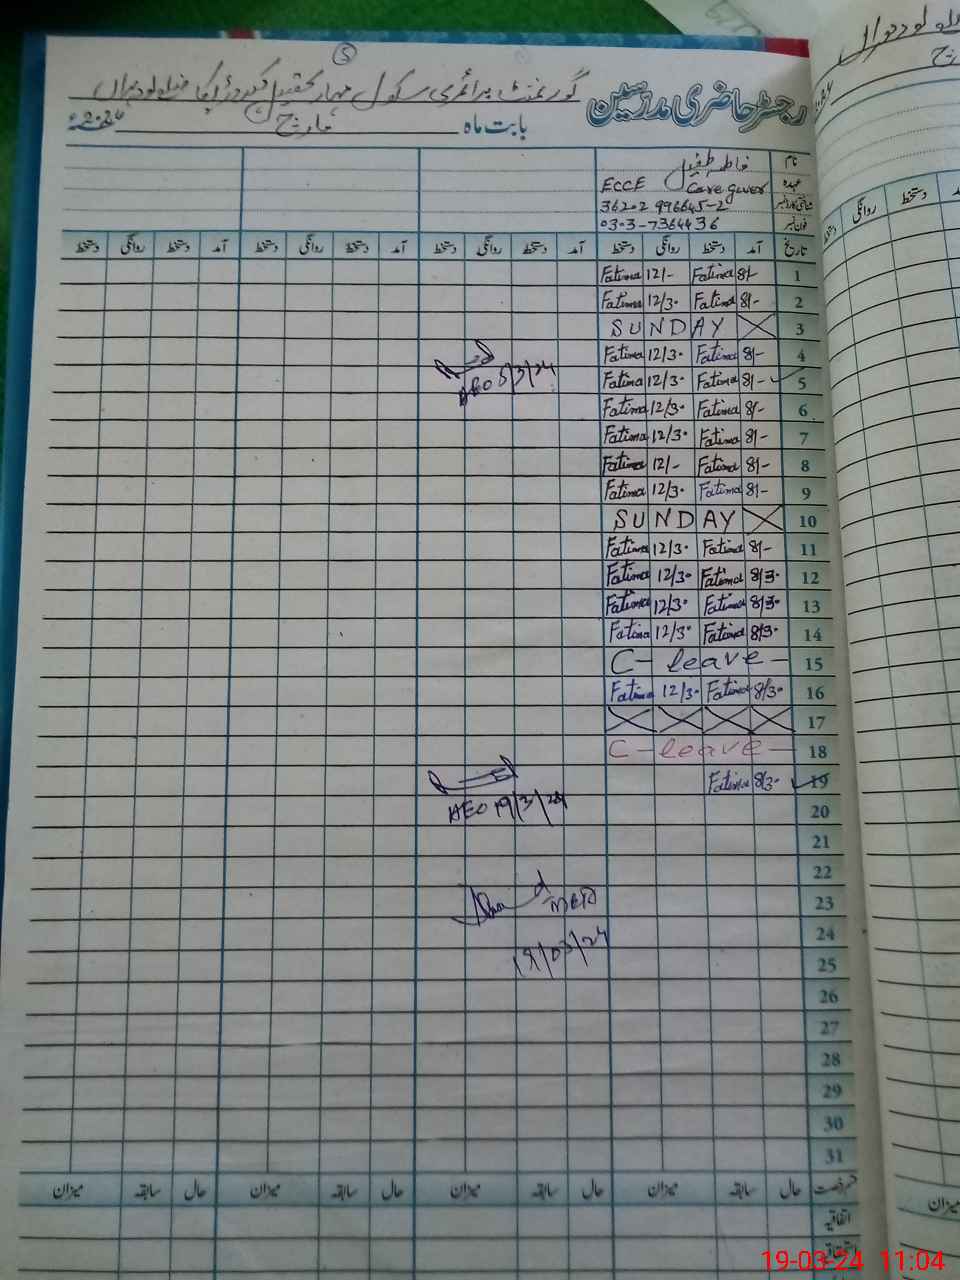 5
رجسٹر حاضری مدرسین گورنمنٹ پرائمری سکول تحصیل کہروڑ پکا ضلع لودہراں
بابت ماہ مارچ 2024ء
نام فاطمہ طفیل
عہدہ ECCE Care giver
شناختی کارڈ نمبر 36202 996645-2
فون نمبر 0303-7364436
تاریخ آمد دستخط روانگی دستخط آمد دستخط روانگی دستخط آمد دستخط روانگی دستخط آمد دستخط روانگی دستخط
Fatima 12/- Fatima 8/- 1
Fatima 12/30 Fatima 8/- 2
SUNDAY 3
Fatima 12/30 Fatima 8/- 4
Fatima 12/30 Fatima 8/- 5
AEO 5/3/24
Fatima 12/30 Fatima 8/- 6
Fatima 12/30 Fatima 8/- 7
Fatima 12/- Fatima 8/- 8
Fatima 12/30 Fatima 8/- 9
SUNDAY 10
Fatima 12/30 Fatima 8/- 11
Fatima 12/30 Fatima 8/30 12
Fatima 12/30 Fatima 8/30 13
Fatima 12/30 Fatima 8/30 14
C-leave- 15
Fatima 12/30 Fatima 8/30 16
17
C-leave- 18
Fatima 8/30 19
AEO 19/3/24 20
21
22
23
24
19/03/24 25
26
27
28
29
30
31
حال سابقہ میزان حال سابقہ میزان حال سابقہ میزان حال سابقہ میزان
اتفاقیہ
19-03-24 11:04